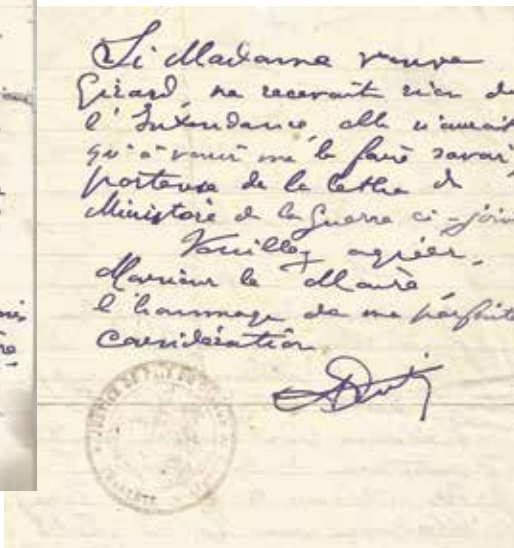 Si Madame veuve
Girard, ne recevait rien de
l'Intendance, elle n'aurait
qu'à venir me le faire savoir,
porteuse de la lettre du
Ministère de la Guerre ci-join
Veuillez agréer,
Monsieur le Maire
l'hommage de ma parfaite
considération
JUSTICE DE PAIX DU